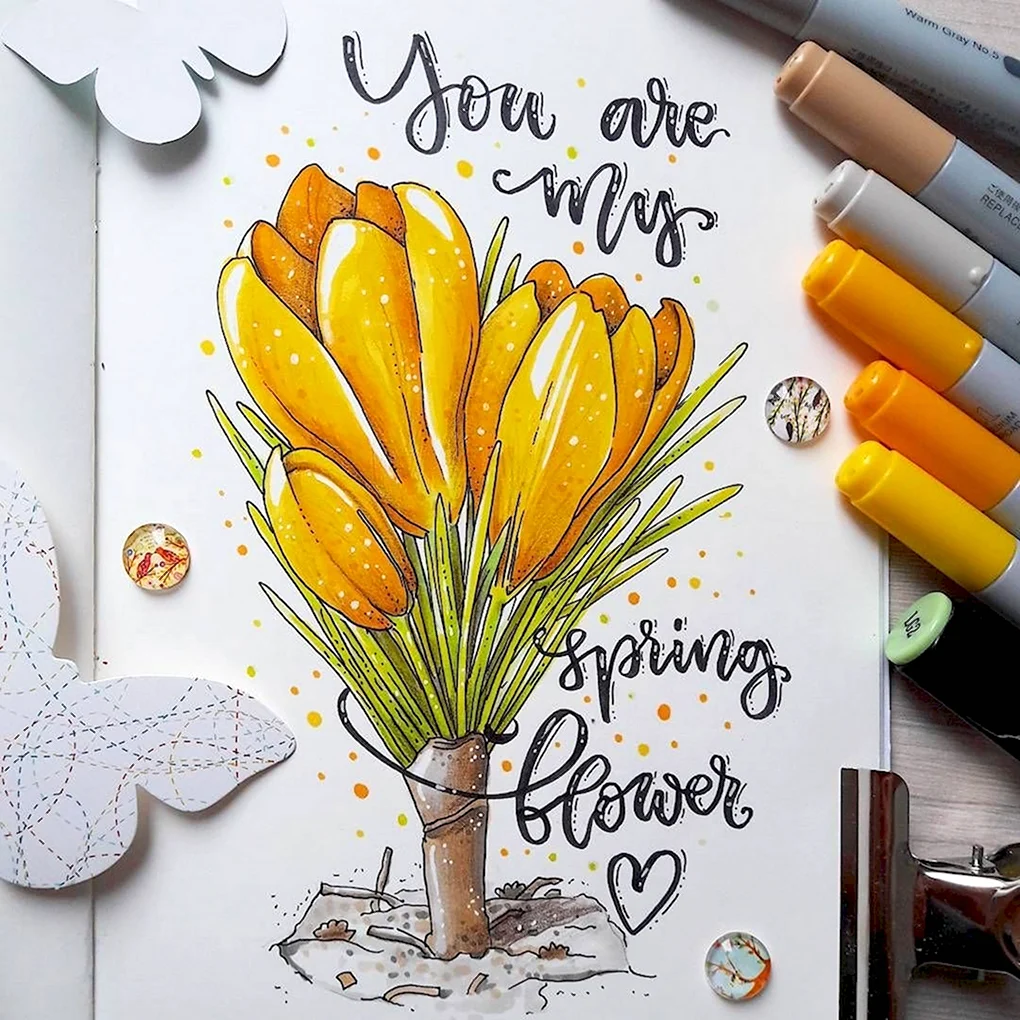 You are
my
spring
flower
Warm Gray No.5
REPLAC
LG2